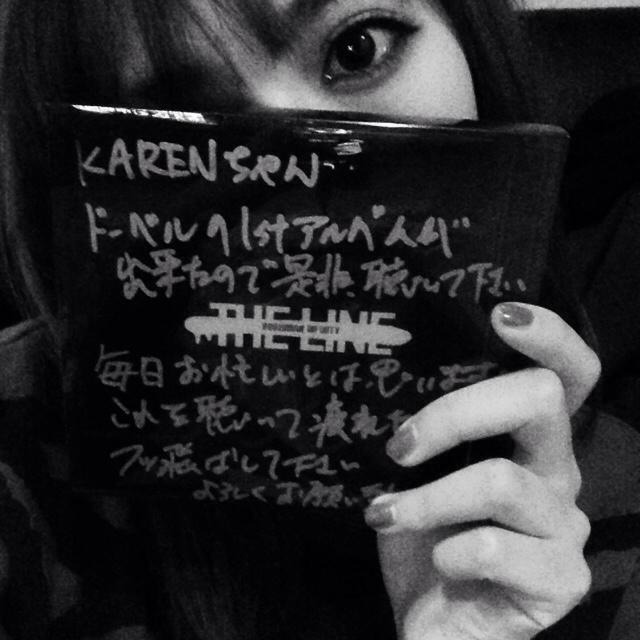 KARENちゃん
ドーベルの1stアルバムが
出来たので是非、聴いて下さい
THE LINE
DOBERMAN INFINITY
毎日お忙しいとは思います
これを聴いて疲れた
ブッ飛ばして下さい
よろしくお願い